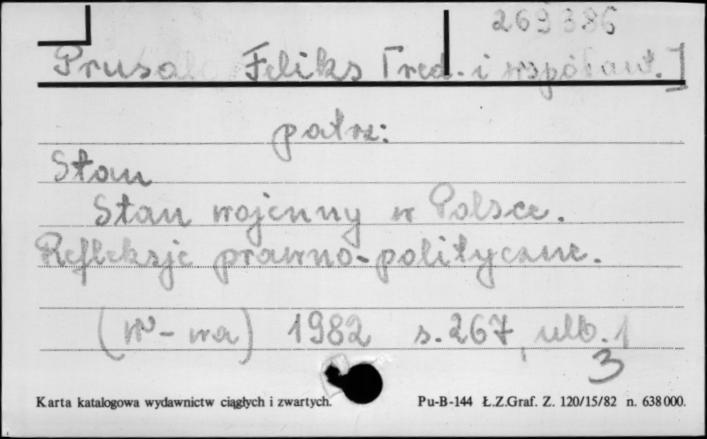 269386
Prusak Feliks [red. i współaut.]
patrz:
Stan
Stan wojenny w Polsce.
Refleksje prawno-polityczne.
(W-wa) 1982 s. 267, nlb. 1
3
Karta katalogowa wydawnictw ciągłych i zwartych. Pu-B-144 Ł.Z.Graf. Z. 120/15/82 n. 638000.